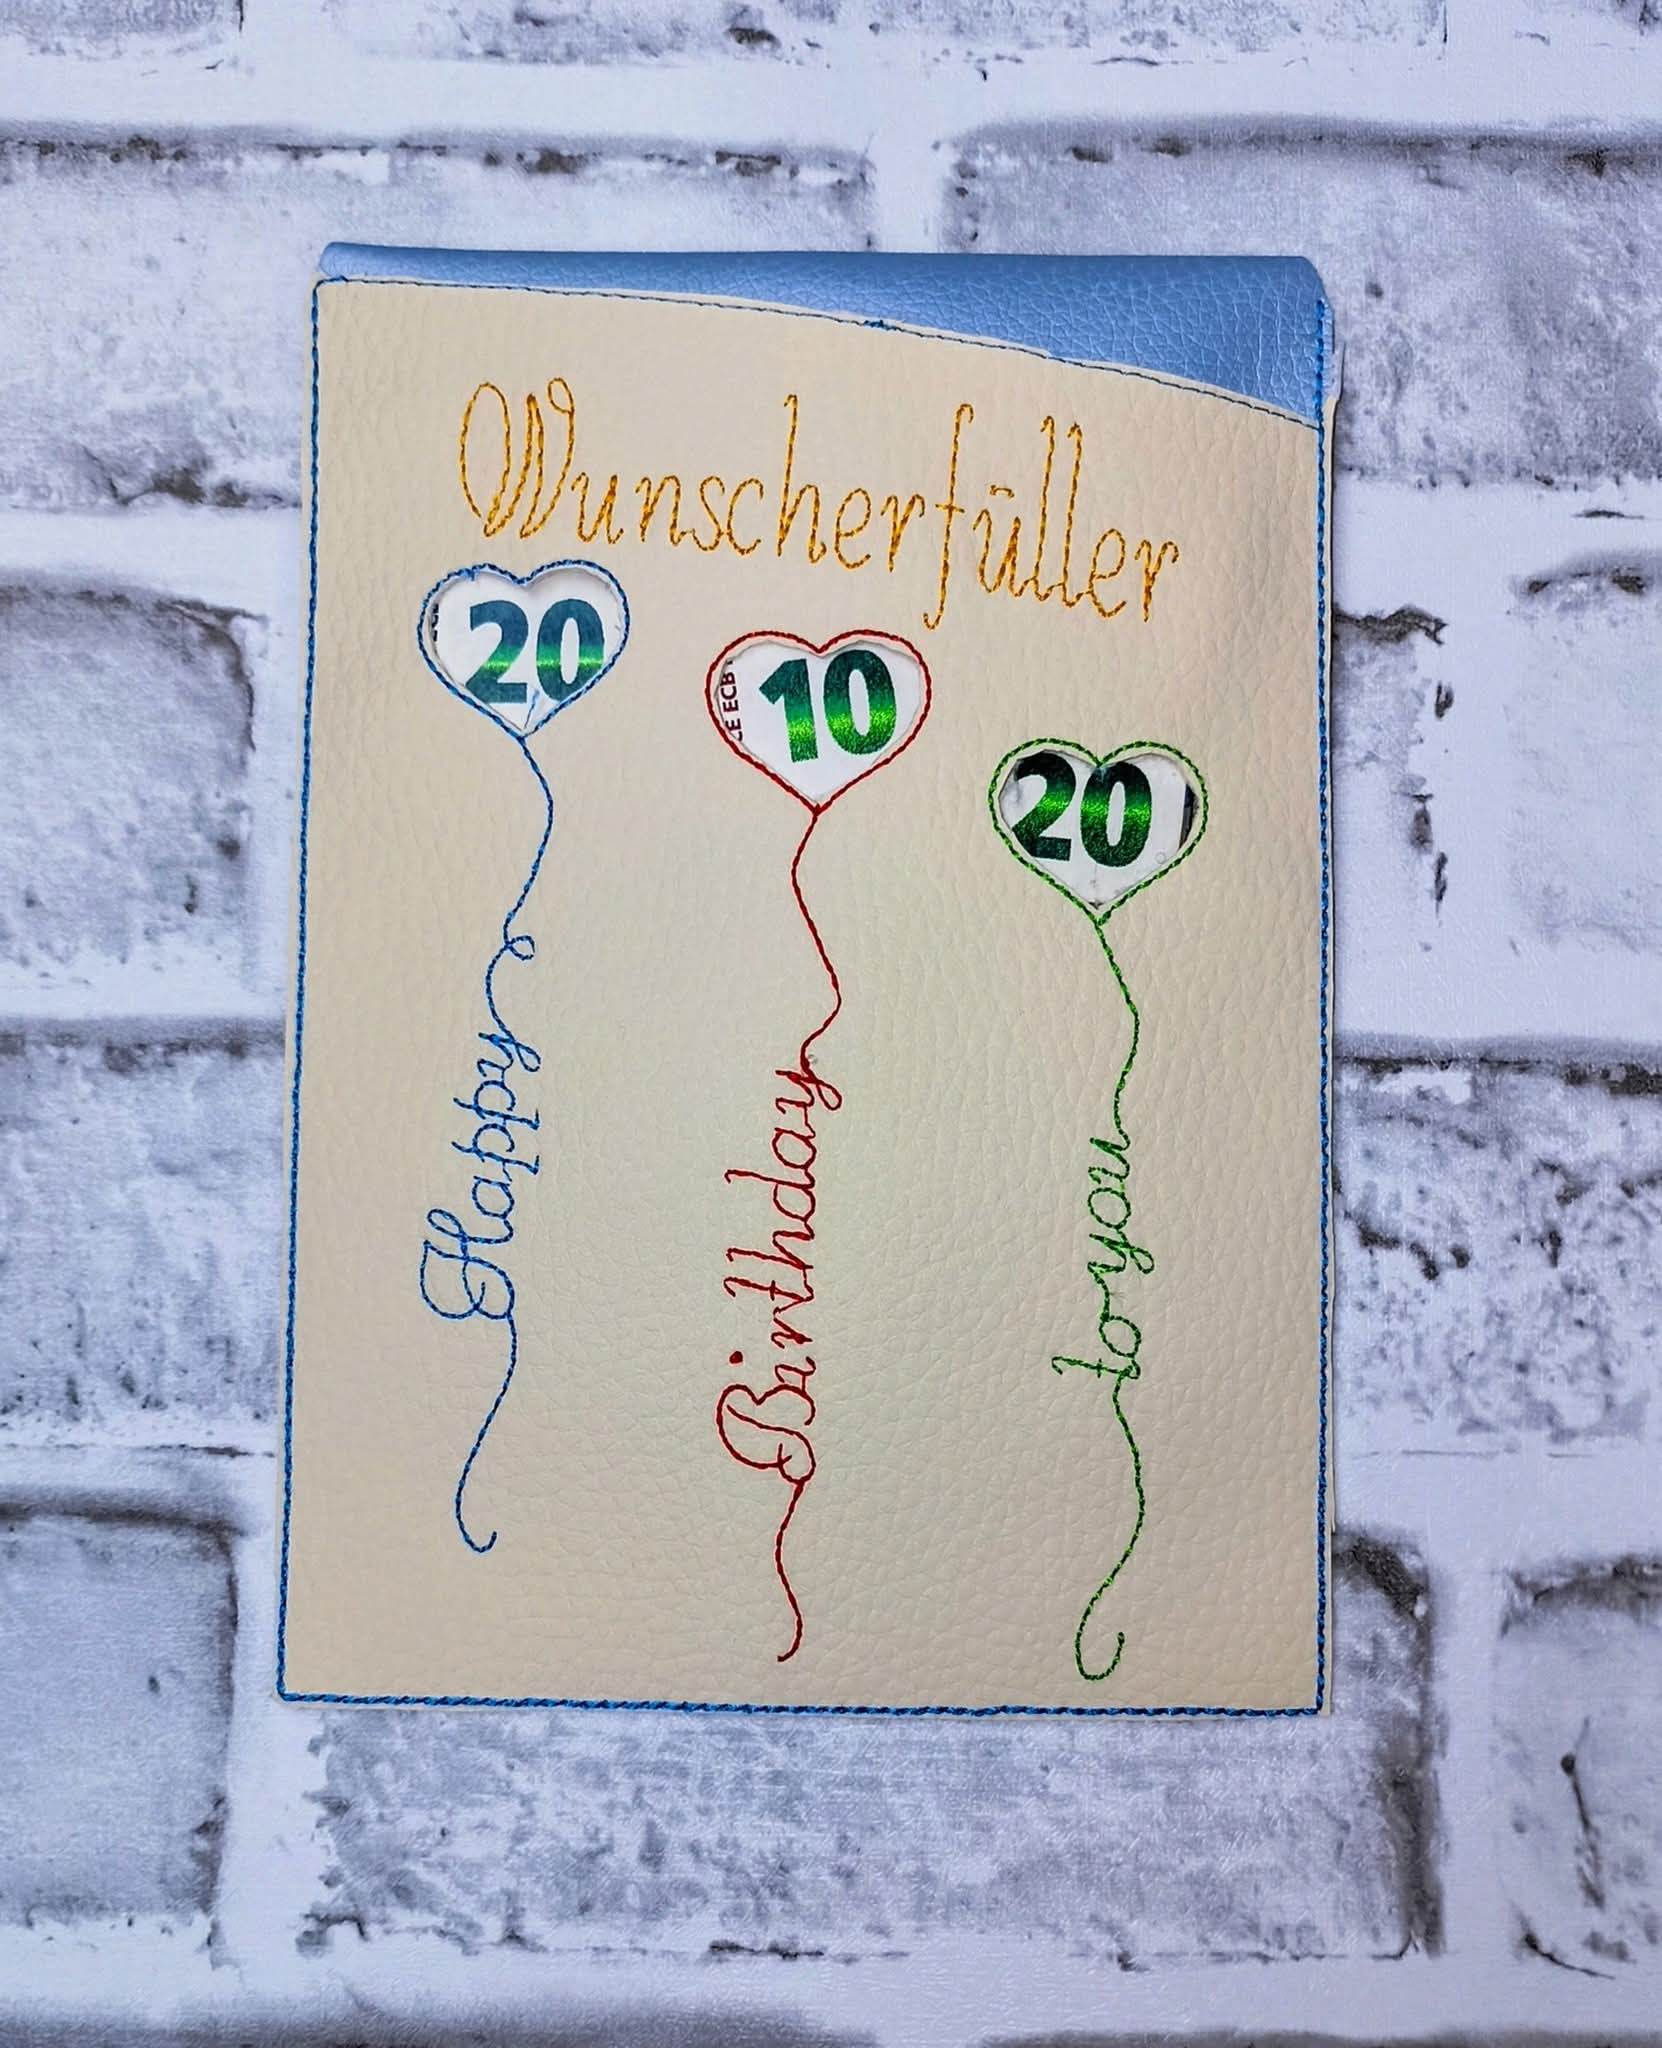 Wunscherfüller
20
10
CE ECB
20
Happy
Birthday
to you